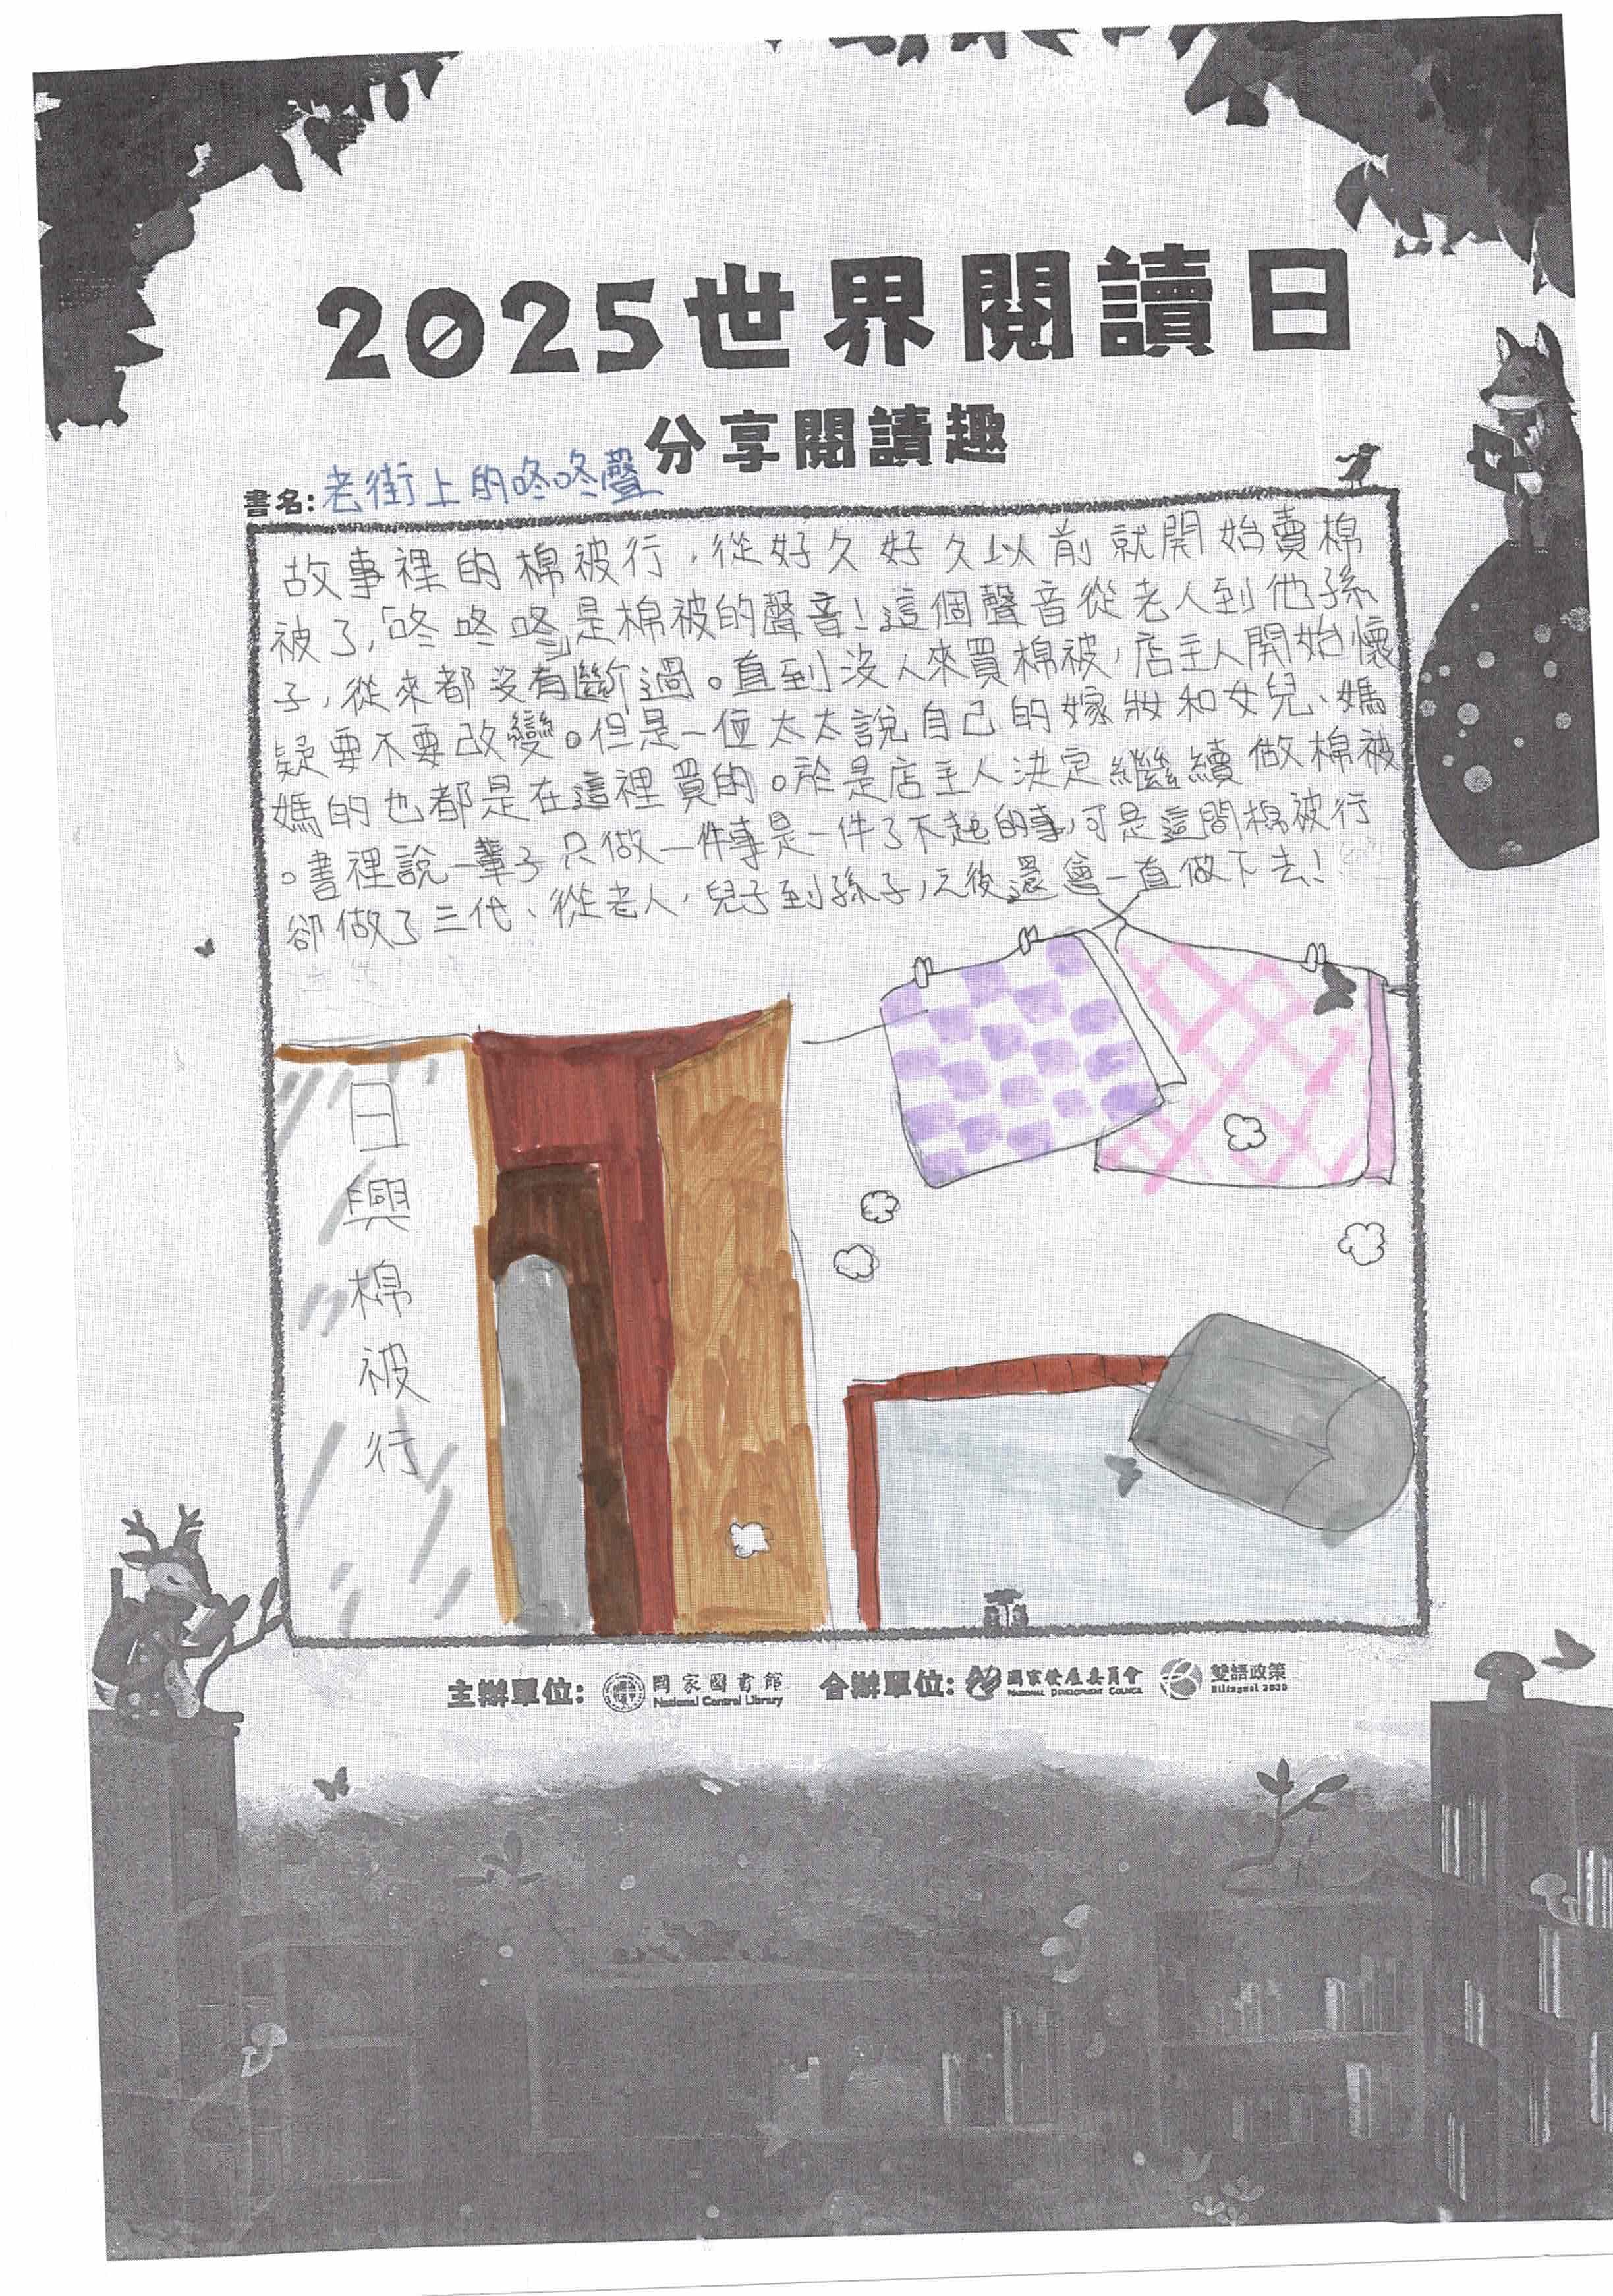 2025世界閱讀日
分享閱讀趣
書名：老街上的咚咚聲
故事裡的棉被行，從好久好久以前就開始賣棉
被了，「咚咚咚」是棉被的聲音！這個聲音從老人到他孫
子，從來都沒有斷過。直到沒人來買棉被，店主人開始懷
疑要不要改變。但是一位太太說自己的嫁妝和女兒、媽
媽的也都是在這裡買的。於是店主人決定繼續做棉被
。書裡說一輩子只做一件事是一件了不起的事，可是這間棉被行
卻做了三代、從老人，兒子到孫子，之後還會一直做下去！
日興棉被行
主辦單位： 國家圖書館 National Central Library 合辦單位： 國家發展委員會 NATIONAL DEVELOPMENT COUNCIL 雙語政策 Bilingual 2030